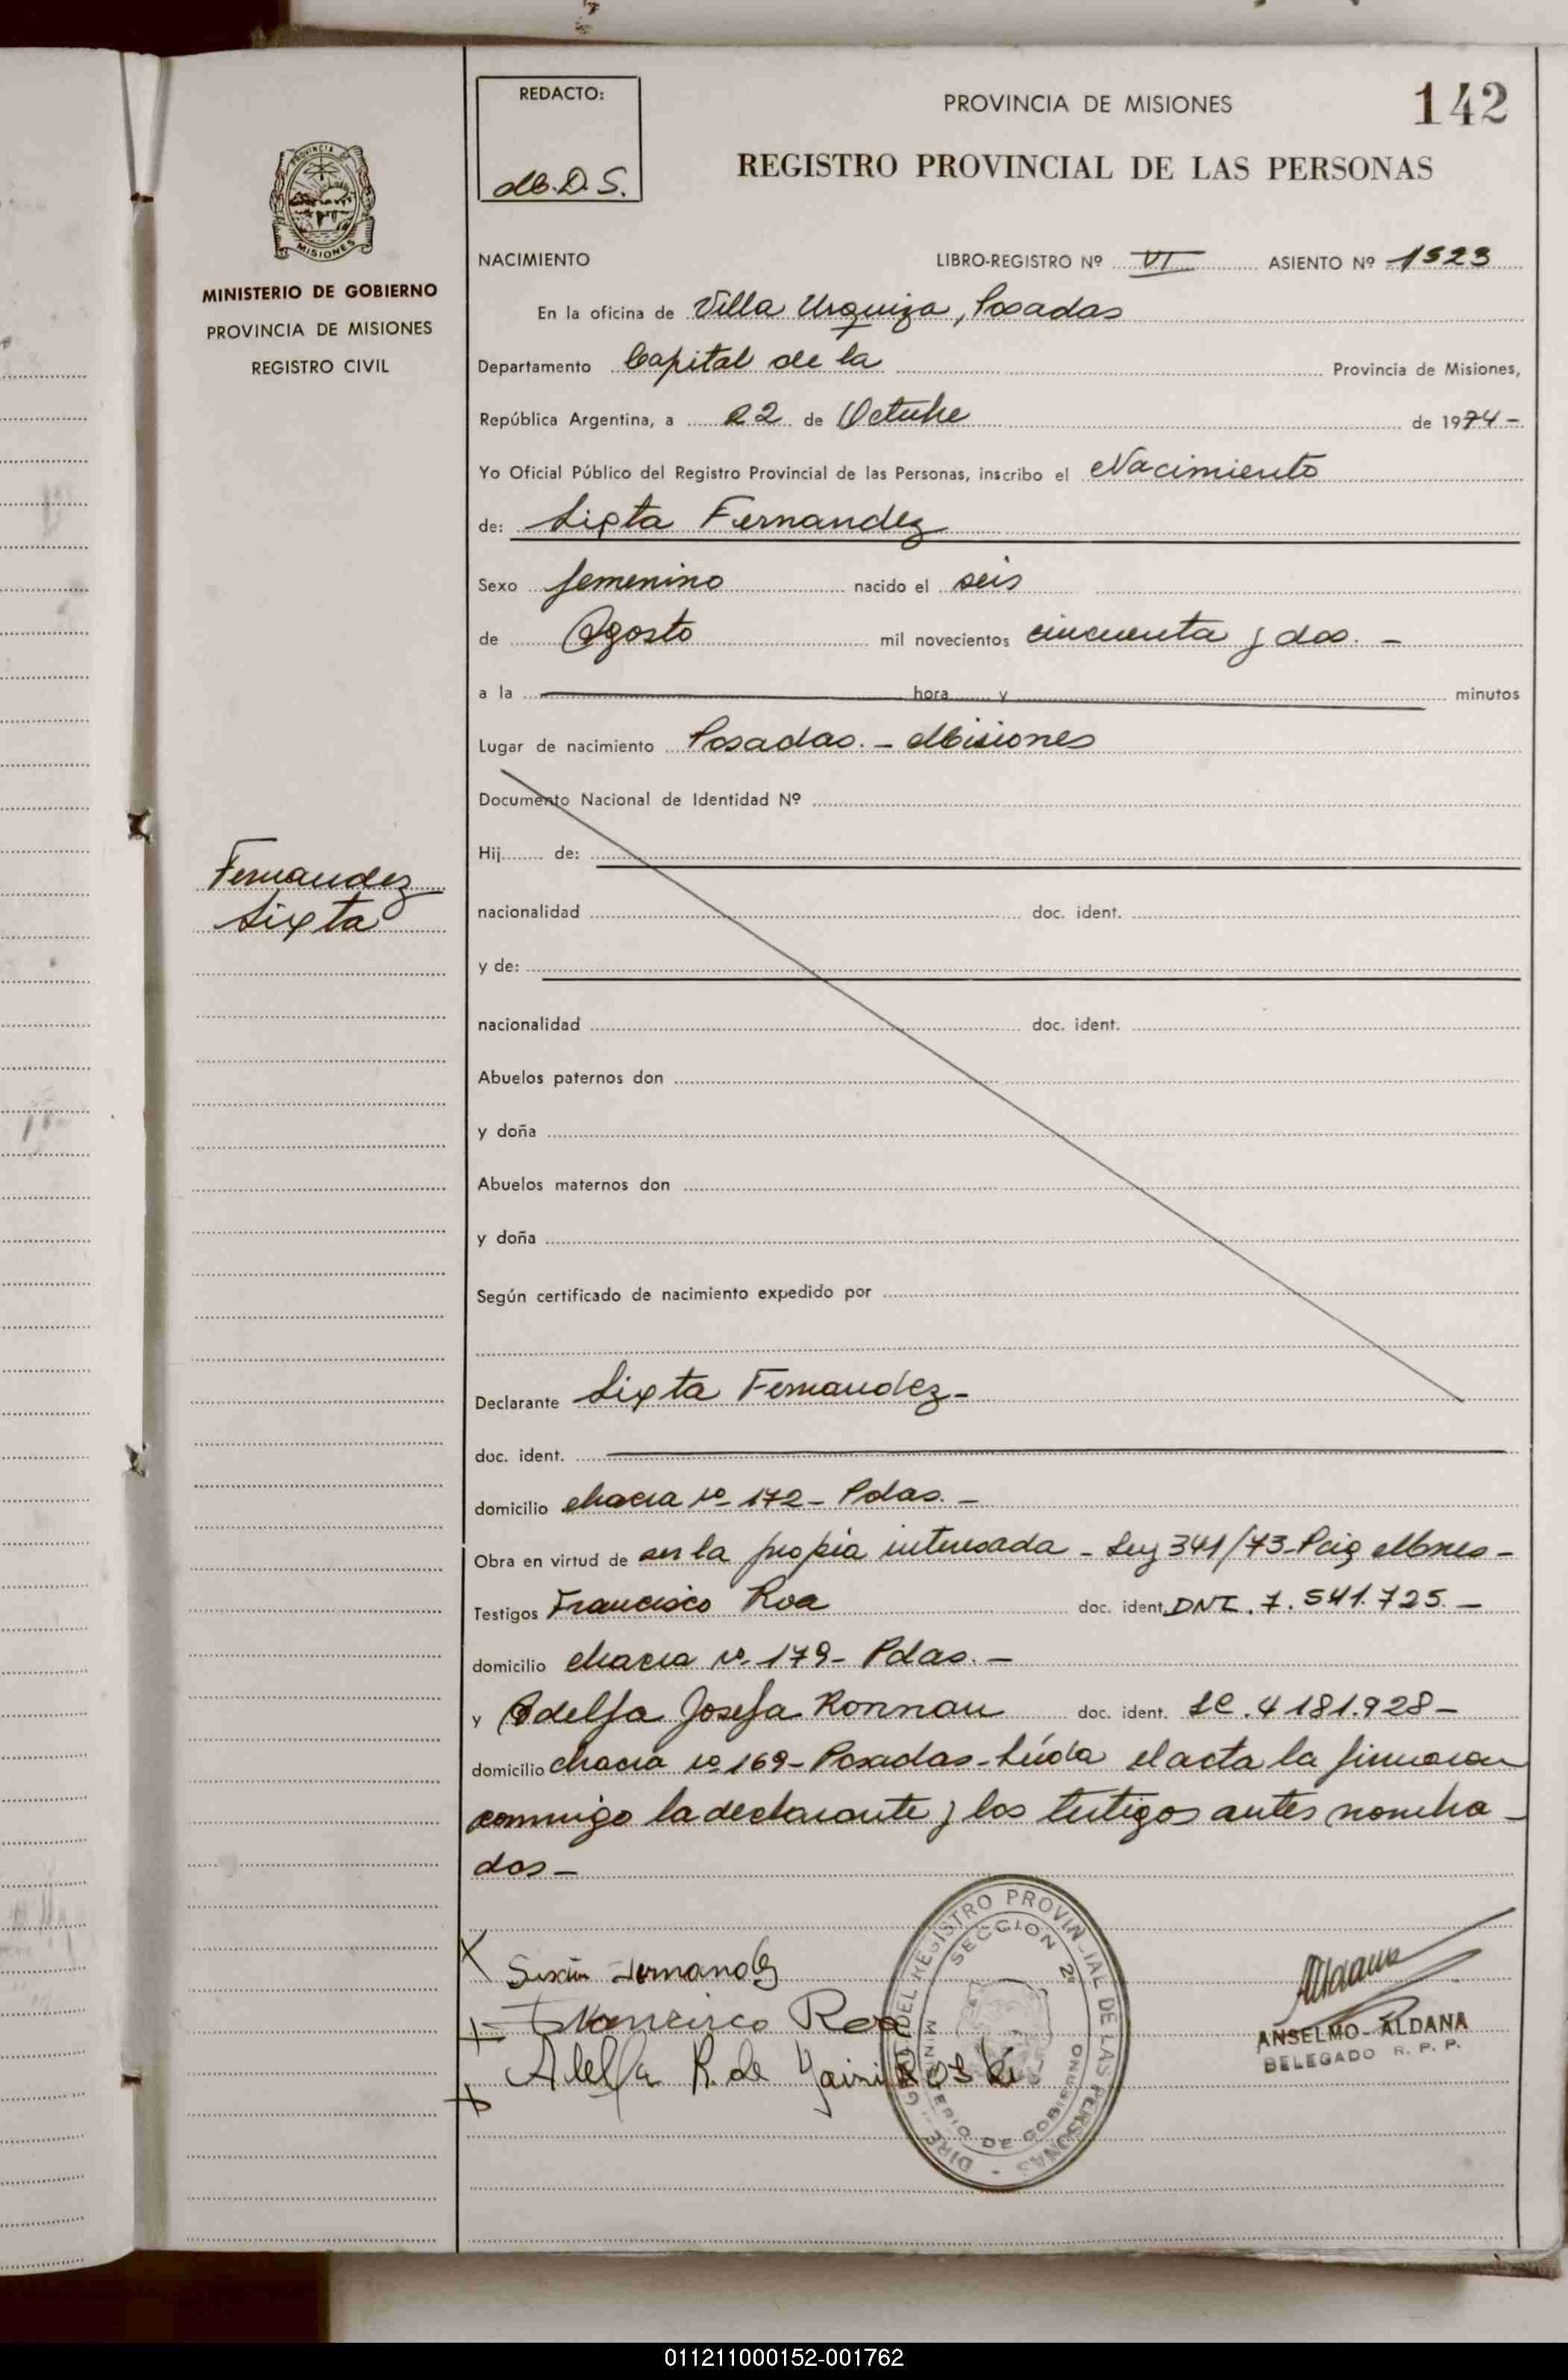 142
REDACTO:
M.D.S.
PROVINCIA DE MISIONES
REGISTRO PROVINCIAL DE LAS PERSONAS
PROVINCIA DE
MISIONES
MINISTERIO DE GOBIERNO
PROVINCIA DE MISIONES
REGISTRO CIVIL
Fernandez
Sixta
NACIMIENTO LIBRO-REGISTRO Nº VI ASIENTO Nº 1523
En la oficina de Villa Urquiza, Posadas
Departamento Capital de la Provincia de Misiones,
República Argentina, a 22 de Octubre de 1974 -
Yo Oficial Público del Registro Provincial de las Personas, inscribo el Nacimiento
de: Sixta Fernandez
Sexo femenino nacido el seis
de Agosto mil novecientos cincuenta y dos. -
a la hora y minutos
Lugar de nacimiento Posadas. - Misiones
Documento Nacional de Identidad Nº
Hij de:
nacionalidad doc. ident.
y de:
nacionalidad doc. ident.
Abuelos paternos don
y doña
Abuelos maternos don
y doña
Según certificado de nacimiento expedido por
Declarante Sixta Fernandez -
doc. ident.
domicilio chacra nº 172 - Pdas. -
Obra en virtud de ser la propia interesada - Ley 341/73 - Mnes -
Testigos Francisco Roa doc. ident. DNI. 7.541.725. -
domicilio chacra nº 179 - Pdas. -
y Adelfa Josefa Ronnau doc. ident. LC. 4181.928 -
domicilio chacra nº 169 - Posadas - Leída el acta la firmaron
conmigo la declarante y los testigos antes nombra -
dos -
Fernandez
Francisco Roa
Adelfa R. de
DIREC. GRAL. DEL REGISTRO PROVINCIAL DE LAS PERSONAS
SECCION 2ª
MINISTERIO DE GOBIERNO
Aldana
ANSELMO ALDANA
DELEGADO R. P. P.
011211000152-001762